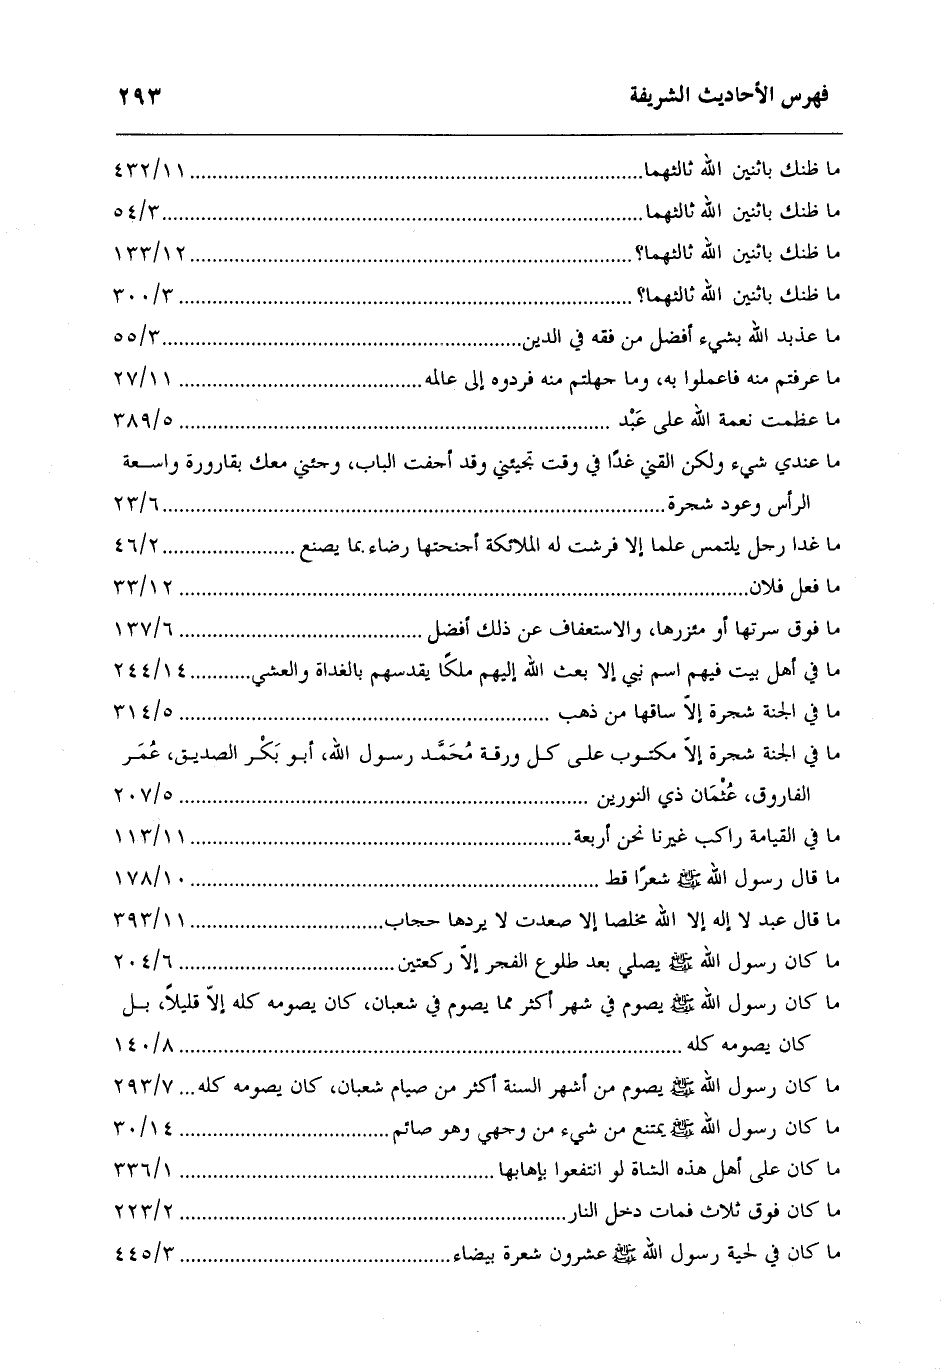 فهرس الأحاديث الشريفة ٢٩٣
ما ظنك باثنين الله ثالثهما ٤٣٢/١١
ما ظنك باثنين الله ثالثهما ٥٤/٣
ما ظنك باثنين الله ثالثهما؟ ١٣٣/١٢
ما ظنك باثنين الله ثالثهما؟ ٣٠٠/٣
ما عذبد الله بشيء أفضل من فقه في الدين ٥٥/٣
ما عرفتم منه فاعملوا به، وما جهلتم منه فردوه إلى عالمه ٢٧/١١
ما عظمت نعمة الله على عَبْد ٣٨٩/٥
ما عندي شيء ولكن القني غدًا في وقت تجيئني وقد أجفت الباب، وجئني معك بقارورة واسعة
الرأس وعود شجرة ٢٣/٦
ما غدا رجل يلتمس علما إلا فرشت له الملائكة أجنحتها رضاء بما يصنع ٤٦/٢
ما فعل فلان ٣٣/١٢
ما فوق سرتها أو مئزرها، والاستعفاف عن ذلك أفضل ١٣٧/٦
ما في أهل بيت فيهم اسم نبي إلا بعث الله إليهم ملكًا يقدسهم بالغداة والعشي ٢٤٤/١٤
ما في الجنة شجرة إلاّ ساقها من ذهب ٣١٤/٥
ما في الجنة شجرة إلاّ مكتوب على كل ورقة مُحَمَّد رسول الله، أبو بَكْر الصديق، عُمَر
الفاروق، عُثْمَان ذي النورين ٢٠٧/٥
ما في القيامة راكب غيرنا نحن أربعة ١١٣/١١
ما قال رسول الله ﷺ شعرًا قط ١٧٨/١٠
ما قال عبد لا إله إلا الله مخلصا إلا صعدت لا يردها حجاب ٣٩٣/١١
ما كان رسول الله ﷺ يصلي بعد طلوع الفجر إلاّ ركعتين ٢٠٤/٦
ما كان رسول الله ﷺ يصوم في شهر أكثر مما يصوم في شعبان، كان يصومه كله إلاّ قليلاً، بل
كان يصومه كله ١٤٠/٨
ما كان رسول الله ﷺ يصوم من أشهر السنة أكثر من صيام شعبان، كان يصومه كله ٢٩٣/٧
ما كان رسول الله ﷺ يمتنع من شيء من وجهي وهو صائم ٣٠/١٤
ما كان على أهل هذه الشاة لو انتفعوا بإهابها ٣٣٦/١
ما كان فوق ثلاث فمات دخل النار ٢٢٣/٢
ما كان في لحية رسول الله ﷺ عشرون شعرة بيضاء ٤٤٥/٣